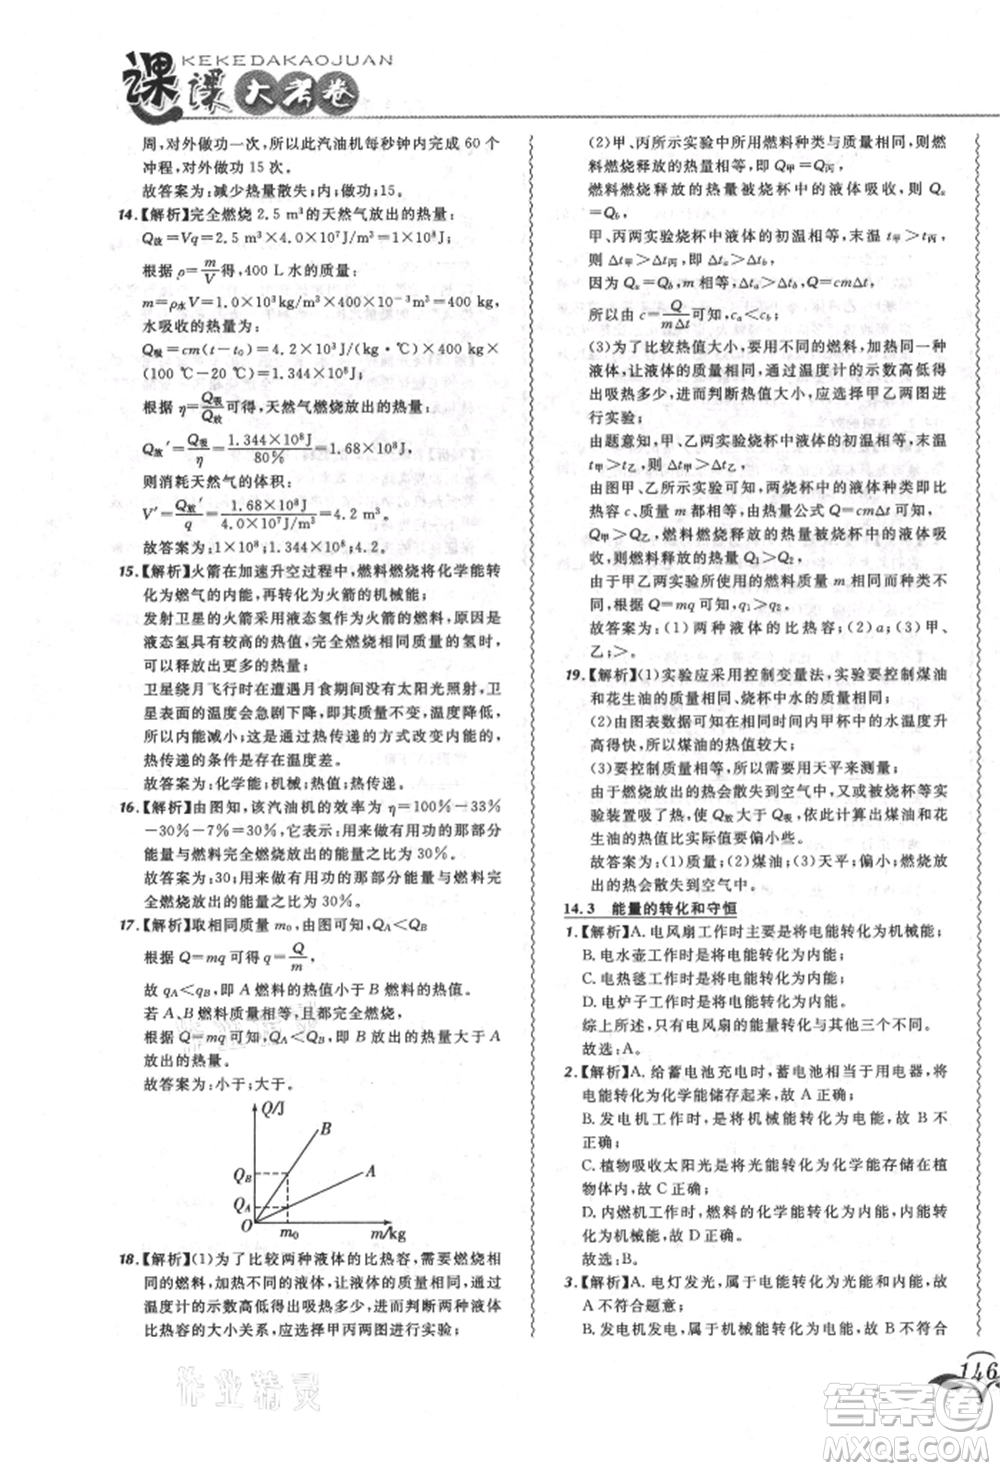 KEKEDAKAOJUAN
课课大考卷
周,对外做功一次,所以此汽油机每秒钟内完成 60 个
冲程,对外做功 15 次。
故答案为:减少热量散失;内;做功;15。
14.【解析】完全燃烧 2.5 m³的天然气放出的热量:
Q放=Vq=2.5 m³×4.0×10⁷J/m³=1×10⁸J;
根据 ρ=m/V得,400 L水的质量:
m=ρ水V=1.0×10³kg/m³×400×10⁻³m³=400 kg,
水吸收的热量为:
Q吸=cm(t-t₀)=4.2×10³J/(kg·℃)×400 kg×
(100 ℃-20 ℃)=1.344×10⁸J;
根据 η=Q吸/Q放可得,天然气燃烧放出的热量:
Q放′=Q吸/η=1.344×10⁸J/80%=1.68×10⁸J,
则消耗天然气的体积:
V′=Q放′/q=1.68×10⁸J/4.0×10⁷J/m³=4.2 m³。
故答案为:1×10⁸;1.344×10⁸;4.2。
15.【解析】火箭在加速升空过程中,燃料燃烧将化学能转
化为燃气的内能,再转化为火箭的机械能;
发射卫星的火箭采用液态氢作为火箭的燃料,原因是
液态氢具有较高的热值,完全燃烧相同质量的氢时,
可以释放出更多的热量;
卫星绕月飞行时在遭遇月食期间没有太阳光照射,卫
星表面的温度会急剧下降,这是由于发生了热传递,
所以内能减小;
热传递的条件是存在温度差。
故答案为:化学能;机械;热值;热传递。
16.【解析】由图知,该汽油机的效率为 η=100%-33%
-30%-7%=30%,它表示:用来做有用功的那部分
能量与燃料完全燃烧放出的能量之比为 30%。
故答案为:30;用来做有用功的那部分能量与燃料完
全燃烧放出的能量之比为 30%。
17.【解析】取相同质量 m₀,由图可知,QA<QB
根据 Q=mq 可得 q=Q/m
故 qA<qB,即 A 燃料的热值小于 B 燃料的热值。
若 A、B 燃料质量相等,且都完全燃烧,
根据 Q=mq 可得,QA<QB,即 B 放出的热量大于 A
放出的热量。
故答案为:小于;大于。
Q/J
B
A
QB
QA
O
m₀
m/kg
18.【解析】(1)为了比较两种液体的比热容,需要燃烧相
同的燃料,加热不同的液体,让液体的质量相同,通过
温度计的示数高低得出吸热多少,进而判断两种液体
比热容的大小关系,应选择甲丙两图进行实验;
(2)甲、丙所示实验中所用的燃料种类与质量相同,则燃
料燃烧释放的热量相等,即 Q甲=Q丙,
燃料燃烧释放的热量被烧杯中的液体吸收,则 Qa
=Qb,
甲、丙两实验烧杯中液体的初温相等,而末温 t甲>t丙,
则 Δt甲>Δt丙,即 Δta>Δtb
因为 Qa=Qb,m相等,Δta>Δtb,Q=cmΔt
所以由 c=Q/mΔt可知,ca<cb;
(3)为了比较热值大小,要用不同的燃料,加热同一种
液体,让液体的质量相同,通过温度计的示数高低得出
吸热多少,进而判断热值大小,应选择甲乙两图进
行实验;
由题意知,甲、乙两实验烧杯中液体的初温相同,末温
t甲>t乙,则 Δt甲>Δt乙,
由图甲、乙所示实验可知,两烧杯中的液体种类即比
热容 c、质量 m 都相等,由热量公式 Q=cmΔt可知,
Q甲>Q乙,燃料燃烧释放的热量被烧杯中的液体吸
收,则燃料释放的热量 Q₁>Q₂,
由于甲乙两实验所使用的燃料质量 m 相等,由
Q=mq 可知,q₁>q₂,
故答案为:(1)两种液体的比热容;(2)a;(3)甲、
乙;>。
19.【解析】(1)实验应采用控制变量法,实验要控制煤油
和花生油的质量相同,烧杯中水的质量相同;
(2)由图表数据可知在相同时间内甲杯中的水温度升
高得快,所以煤油的热值较大;
(3)要控制质量相同,需要用天平进行测量;
由于燃烧放出的热会散失到空气中,又或者烧杯等实
验装置吸了热,使 Q放大于 Q吸,依此计算出煤油和花
生油的热值比实际值要偏小些。
故答案为:(1)质量;(2)煤油;(3)天平;偏小;燃烧放
出的热会散失到空气中。
14.3 能量的转化和守恒
1.【解析】A.电风扇工作时主要是将电能转化为机械能;
B.电水壶工作时是将电能转化为内能;
C.电热毯工作时是将电能转化为内能;
D.电炉子工作时是将电能转化为内能。
综上所述,只有电风扇的能量转化与其他三个不同。
故选:A。
2.【解析】A.给蓄电池充电时,蓄电池相当于用电器,将
电能转化为化学能储存起来,故 A 正确;
B.发电机工作时,是将机械能转化为电能,故 B 不
正确;
C.植物吸收太阳光是将光能转化为化学能存储在植
物体内,故 C 正确;
D.内燃机工作时,燃料的化学能转化为内能,内能再
转化为机械能,故 D 正确。
故选:B。
3.【解析】A.电灯发光,属于电能转化为光能和内能,故
A 不符合题意;
B.发电机发电,属于机械能转化为电能,故 B 不符合
146
作业精灵
答案圈
MXQE.COM